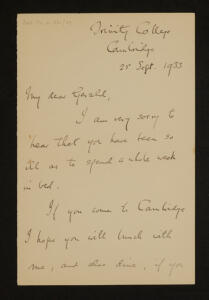 Trinity College
Cambridge
25 Sept. 1933
My dear Gerald,
I am very sorry to
hear that you have been so
ill as to spend a whole week
in bed.
If you come to Cambridge
I hope you will lunch with
me, and also dine, if you